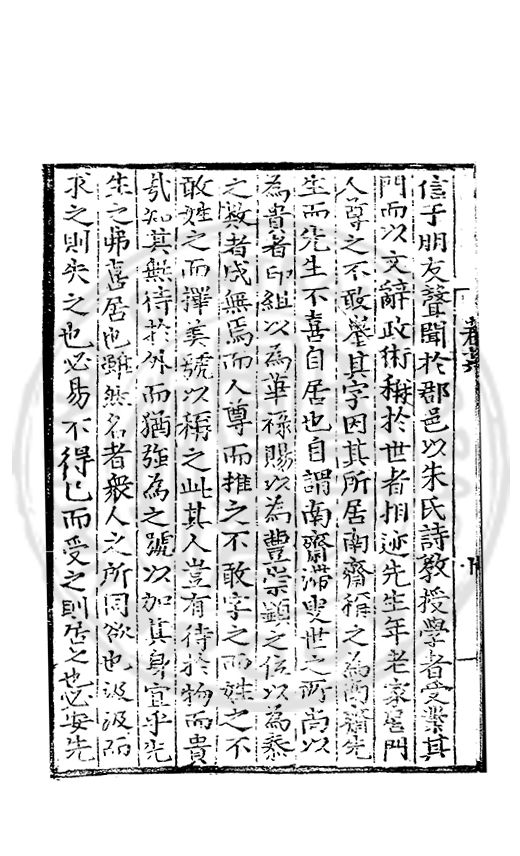 信于朋友聲聞於郡邑以朱氏詩教授學者受業其
門而以文辭政術稱於世者相迹先生年老家居門
人尊之不敢舉其字因其所居南齋稱之為南齋先
生而先生不喜自居也自謂南齋滯叟世之所尚以
為貴者印組以為華祿賜以為豐崇顯之位以為泰
之數者咸無焉而人尊而推之不敢字之而姓之不
敢姓之而擇美號以稱之此其人豈有待於物而貴
哉知其無待於外而猶強為之號以加其身宜乎先
生之弗舊居也雖然名者衆人之所同欲也汲汲而
求之則失之也必易不得已而受之則居之也必安先